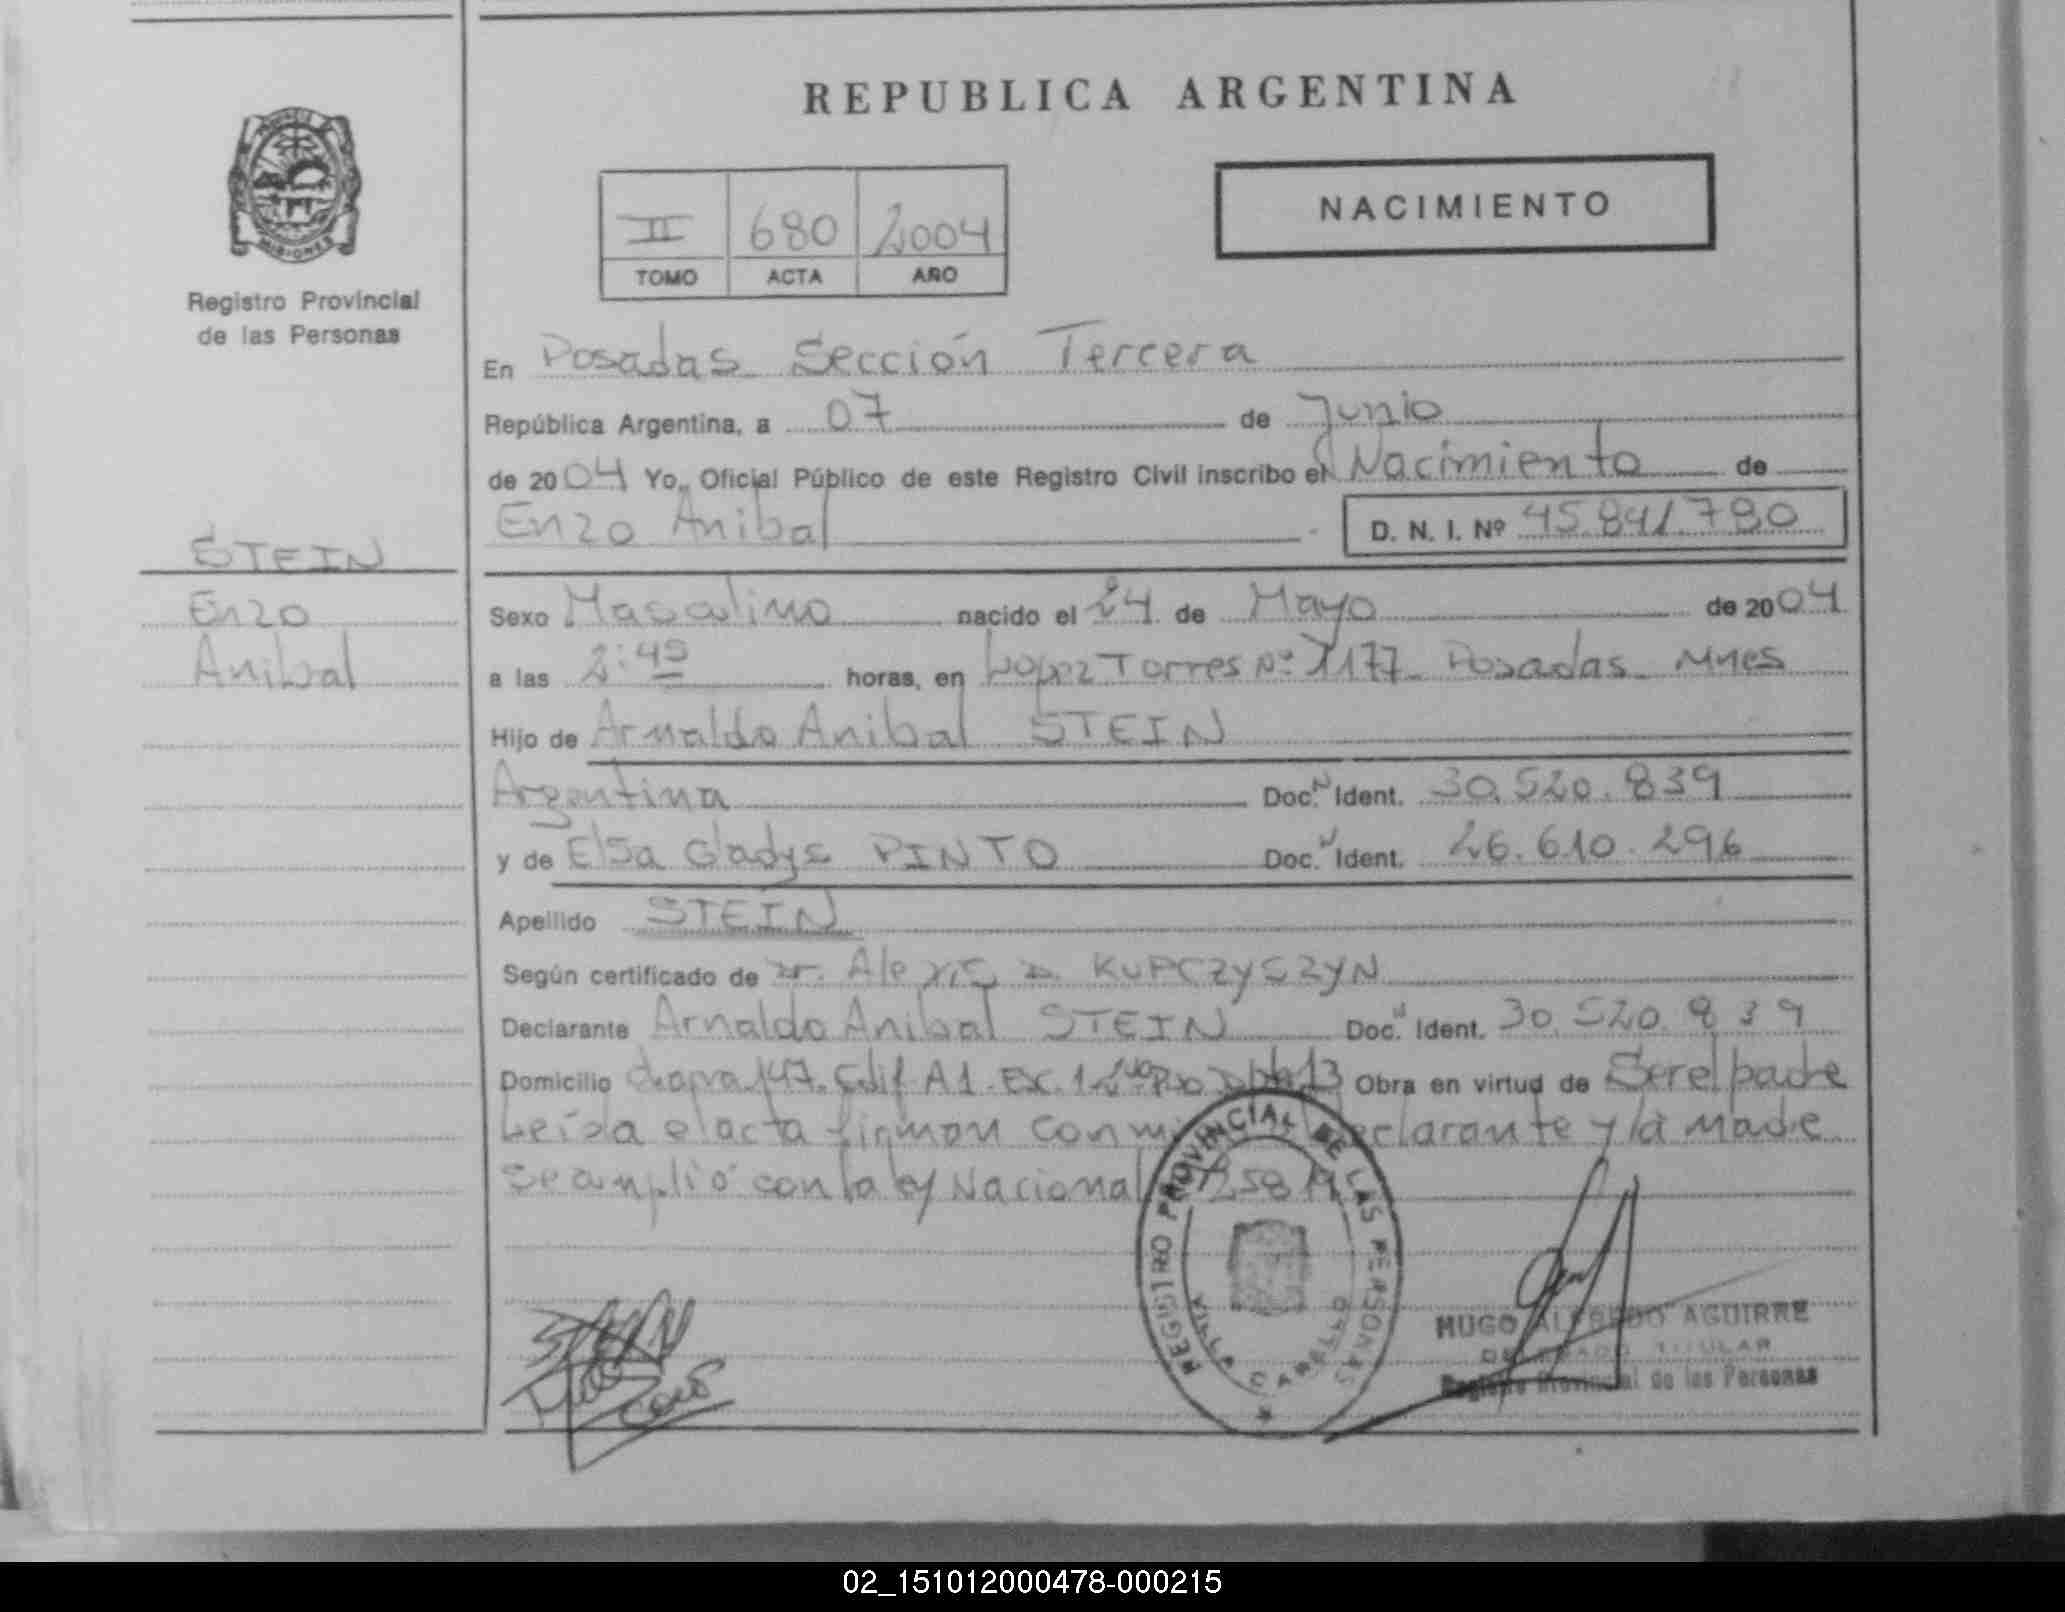 REPUBLICA ARGENTINA
NACIMIENTO
II 680 2004
TOMO ACTA AÑO
MISIONES
Registro Provincial
de las Personas
En Posadas Sección Tercera
República Argentina, a 07 de Junio
de 2004 Yo, Oficial Público de este Registro Civil inscribo el Nacimiento de
Enzo Anibal D. N. I. Nº 45.841.780
STEIN
Enzo
Anibal
Sexo Masculino nacido el 24 de Mayo de 2004
a las 2:45 horas, en Lopez Torres Nº 1177 Posadas Mnes
Hijo de Arnaldo Anibal STEIN
Argentina Doc. N Ident. 30.520.839
y de Elsa Gladys PINTO Doc. N Ident. 26.610.296
Apellido STEIN
Según certificado de Dr. Alexis D. KUPCZYSZYN
Declarante Arnaldo Anibal STEIN Doc. N Ident. 30.520.839
Domicilio chacra 147. Edif A1. Esc. 1 2do Piso Dpto 13 Obra en virtud de Ser el padre
Leída el acta firman con declarante y la madre
se amplió con la ley Nacional
REGISTRO PROVINCIAL DE LAS PERSONAS
VILLA CABELLO
STEIN
HUGO ALFREDO AGUIRRE
DELEGADO TITULAR
Registro Provincial de las Personas
02_151012000478-000215